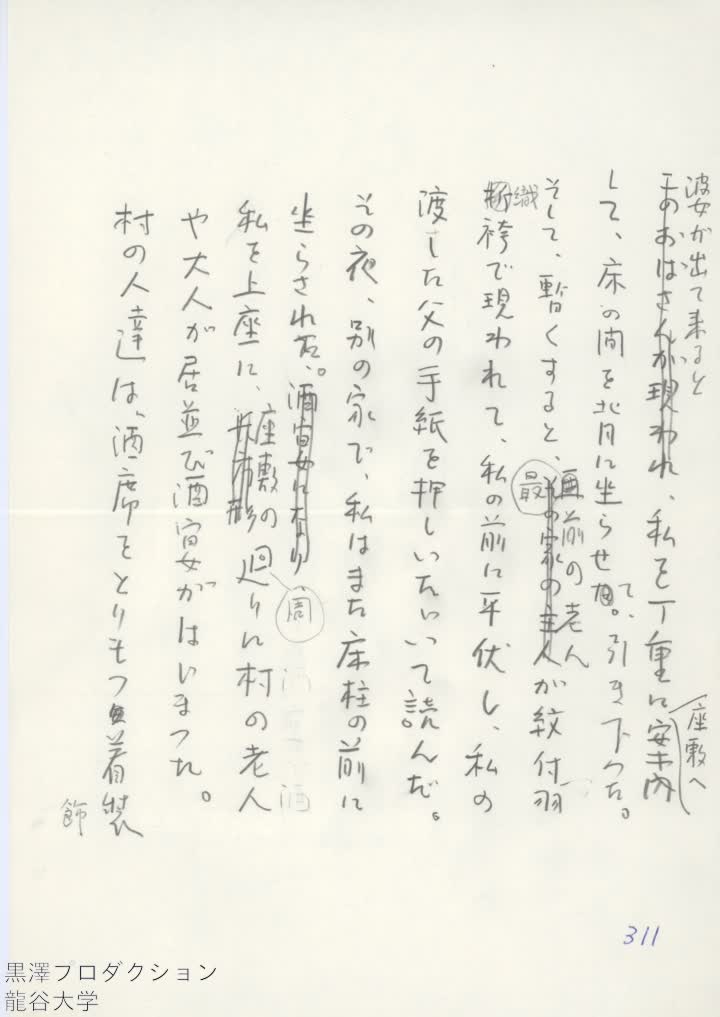 彼女が出て来ると
下のおばさんが現われ、私を丁重に案内
座敷へ
して、床の間を背に坐らせて、引き下った。
そして、暫くすると、その家の主人が紋付羽
最前の老人
織袴で現われて、私の前に平伏し、私の
渡した父の手紙を押しいたゞいて読んだ。
その夜、別の家で、私はまた床柱の前に
坐らされた。酒宴になり
私を上座に、長方形
座敷の廻りに村の老人
周
や大人が居並び酒宴がはじまつた。
村の人達は、酒席をとりもつ着
飾
311
黒澤プロダクション
龍谷大学